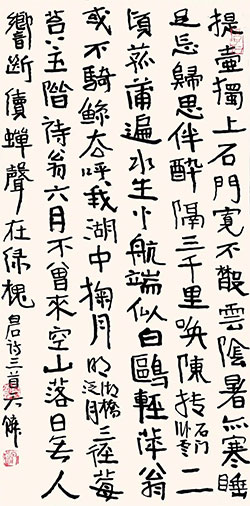 提壺獨上石門寬不散雲陰暑亦寒睡
足忘歸思伴醉隔三千里喚陳摶石門卧雲二
頃菰蒲遍水生小航端似白鷗輕萍翁
或不騎鲸去呼我湖中掬月明湖橋泛月三徑莓
苔上玉階待翁六月不曾來空山落日無人
響斷續蟬聲在绿槐晨詩三首